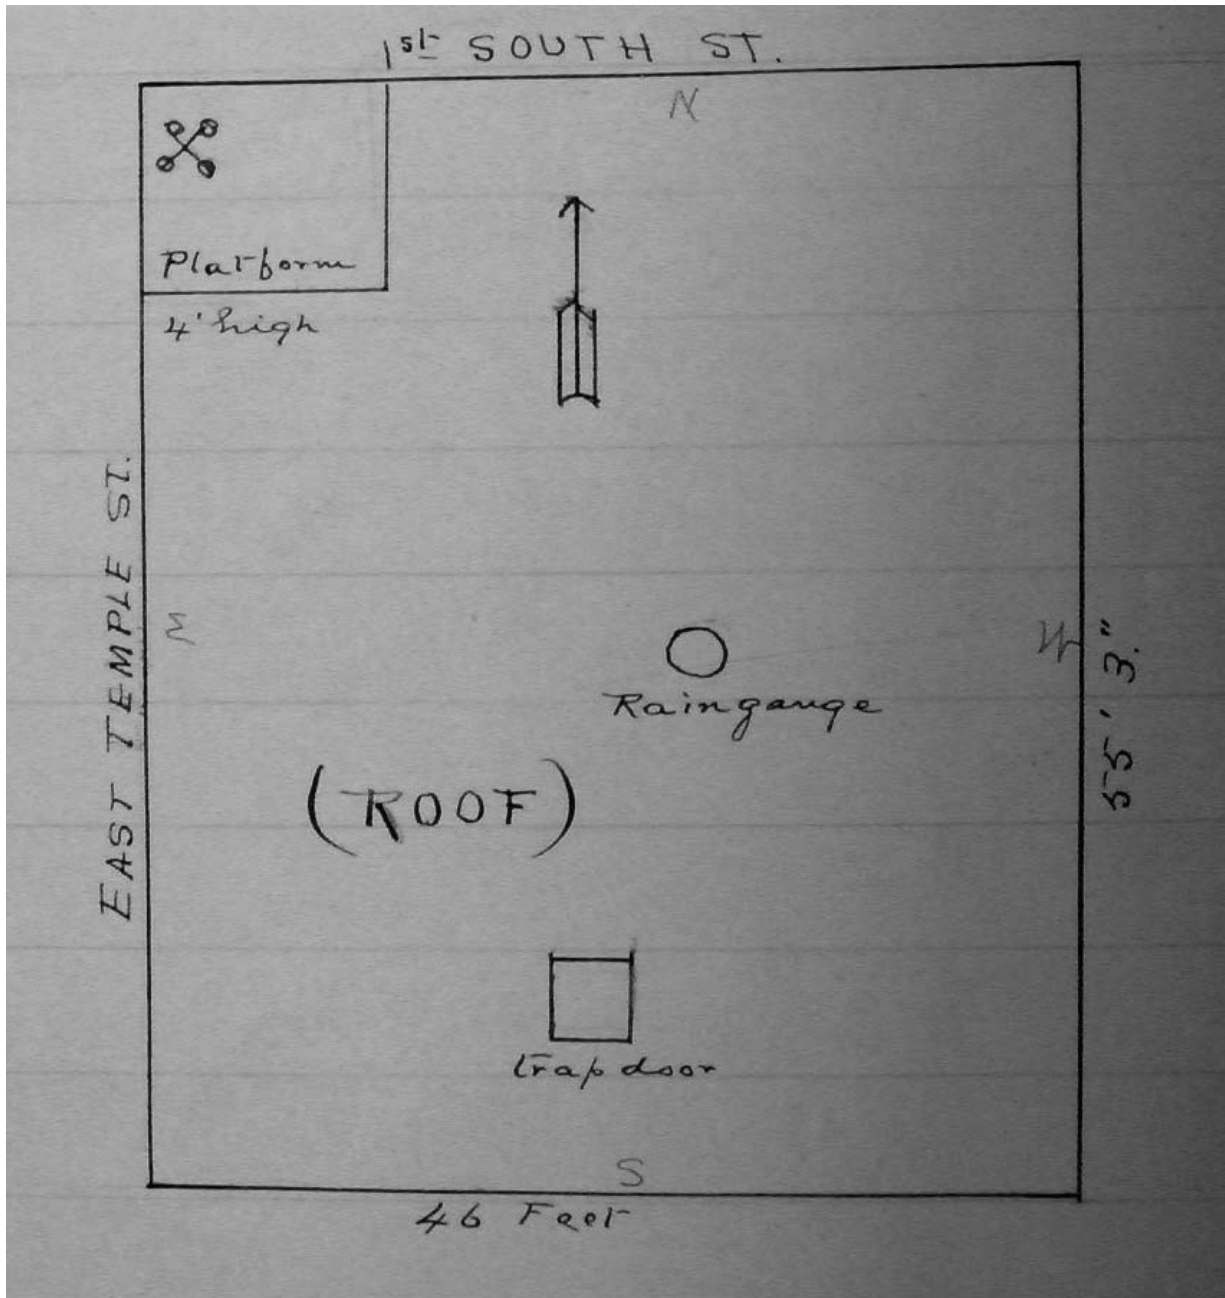 1st SOUTH ST.
N
Platform
4' high
EAST TEMPLE ST.
E
W
55' 3."
Rain gauge
(ROOF)
trap door
S
46 Feet